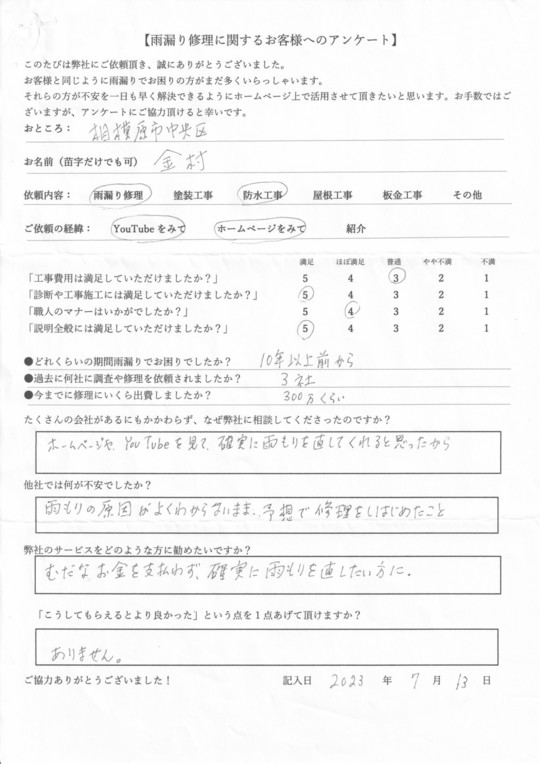 【雨漏り修理に関するお客様へのアンケート】
このたびは弊社にご依頼頂き、誠にありがとうございました。
お客様と同じように雨漏りでお困りの方がまだ多くいらっしゃいます。
それらの方が不安を一日も早く解決できるようにホームページ上で活用させて頂きたいと思います。お手数ではご
ざいますが、アンケートにご協力頂けると幸いです。
おところ： 相模原市中央区
お名前（苗字だけでも可） 金村
依頼内容： 雨漏り修理 塗装工事 防水工事 屋根工事 板金工事 その他
ご依頼の経緯： YouTubeをみて ホームページをみて 紹介
満足 ほぼ満足 普通 やや不満 不満
「工事費用は満足していただけましたか？」 5 4 3 2 1
「診断や工事施工には満足していただけましたか？」 5 4 3 2 1
「職人のマナーはいかがでしたか？」 5 4 3 2 1
「説明全般には満足していただけましたか？」 5 4 3 2 1
●どれくらいの期間雨漏りでお困りでしたか？ 10年以上前から
●過去に何社に調査や修理を依頼されましたか？ 3社
●今までに修理にいくら出費しましたか？ 300万くらい
たくさんの会社があるにもかかわらず、なぜ弊社に相談してくださったのですか？
ホームページや、YouTubeを見て、確実に雨もりを直してくれると思ったから
他社では何が不安でしたか？
雨もりの原因がよくわからないまま、予想で修理をしはじめたこと
弊社のサービスをどのような方に勧めたいですか？
むだなお金を支払わず、確実に雨もりを直したい方に。
「こうしてもらえるとより良かった」という点を１点あげて頂けますか？
ありません。
ご協力ありがとうございました！ 記入日 2023 年 7 月 13 日